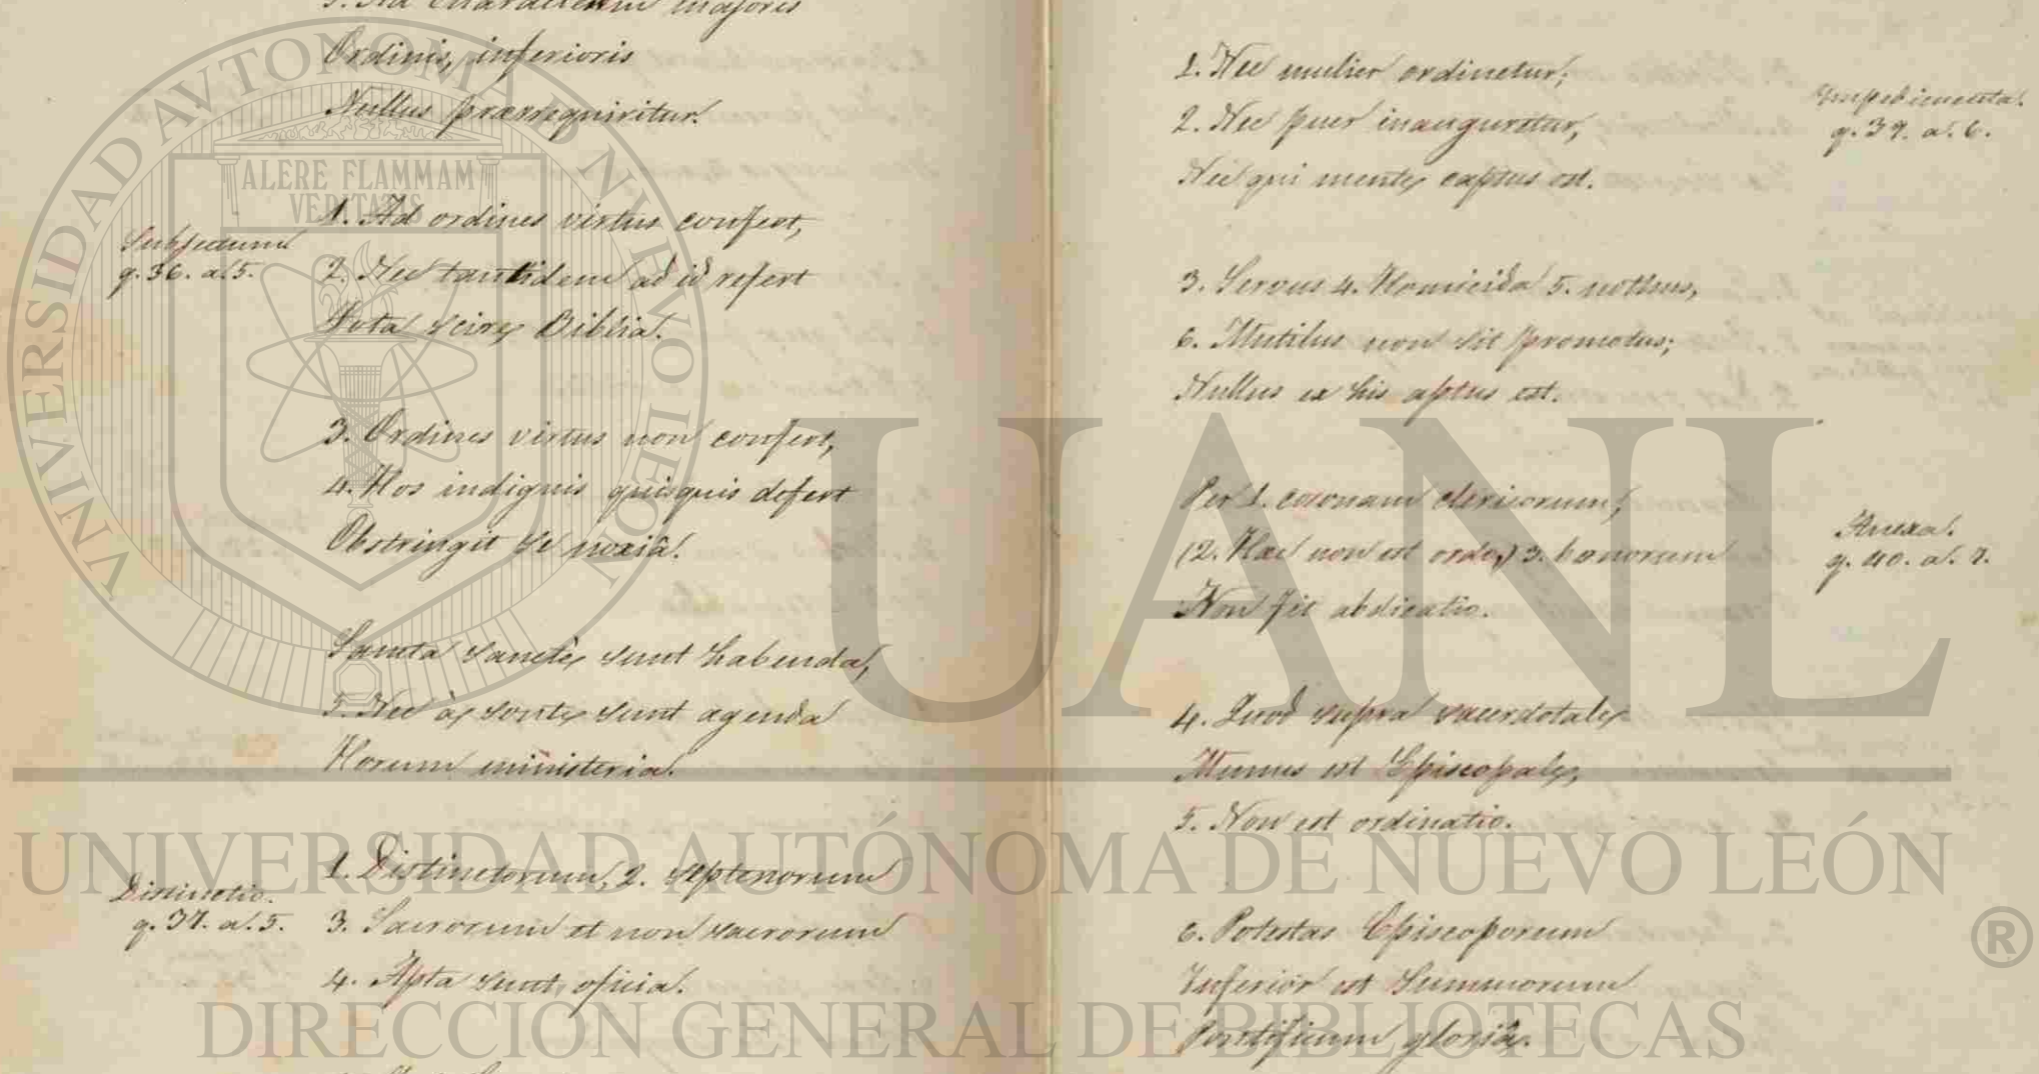 5. Ad characterem majoris
Ordinis, inferioris
Nullus prærrequiritur.
Subjectum
q. 36. a. 5.
1. Ad ordines virtus confert,
2. Nec tantidem ad id refert
Tota scire Biblia.
3. Ordines virtus non confert,
4. Hos indignis quisquis defert
Obstringit se noxiâ.
Sancta sancte sunt habenda,
5. Nec à sonte sunt agenda
Horum ministeria.
Distinctio.
q. 37. a. 5.
1. Distinctorum, 2. septenorum
3. Sacrorum et non sacrorum
4. Apta sunt oficia.
1. Nec mulier ordinetur;
2. Nec puer inauguretur,
Nec qui mente captus est.
Ympedimenta.
q. 39. a. 6.
3. Servus 4. Homicida 5. nothus,
6. Mutilus non sit promotus;
Nullus ex his aptus est.
Per 1. coronam clericorum,
(2. Hac non est ordo,) 3. bonorum
Non fit abdicatio.
Anexa.
q. 40. a. 7.
4. Quod supra sacerdotale
Munus est Episcopale,
5. Non est ordinatio.
6. Potestas Episcoporum
Inferior est Summorum
Pontificum gloriâ.
UNIVERSIDAD AUTONOMA DE NUEVO LEON
ALERE FLAMMAM
VERITATIS
UANL
UNIVERSIDAD AUTÓNOMA DE NUEVO LEÓN
®
DIRECCIÓN GENERAL DE BIBLIOTECAS